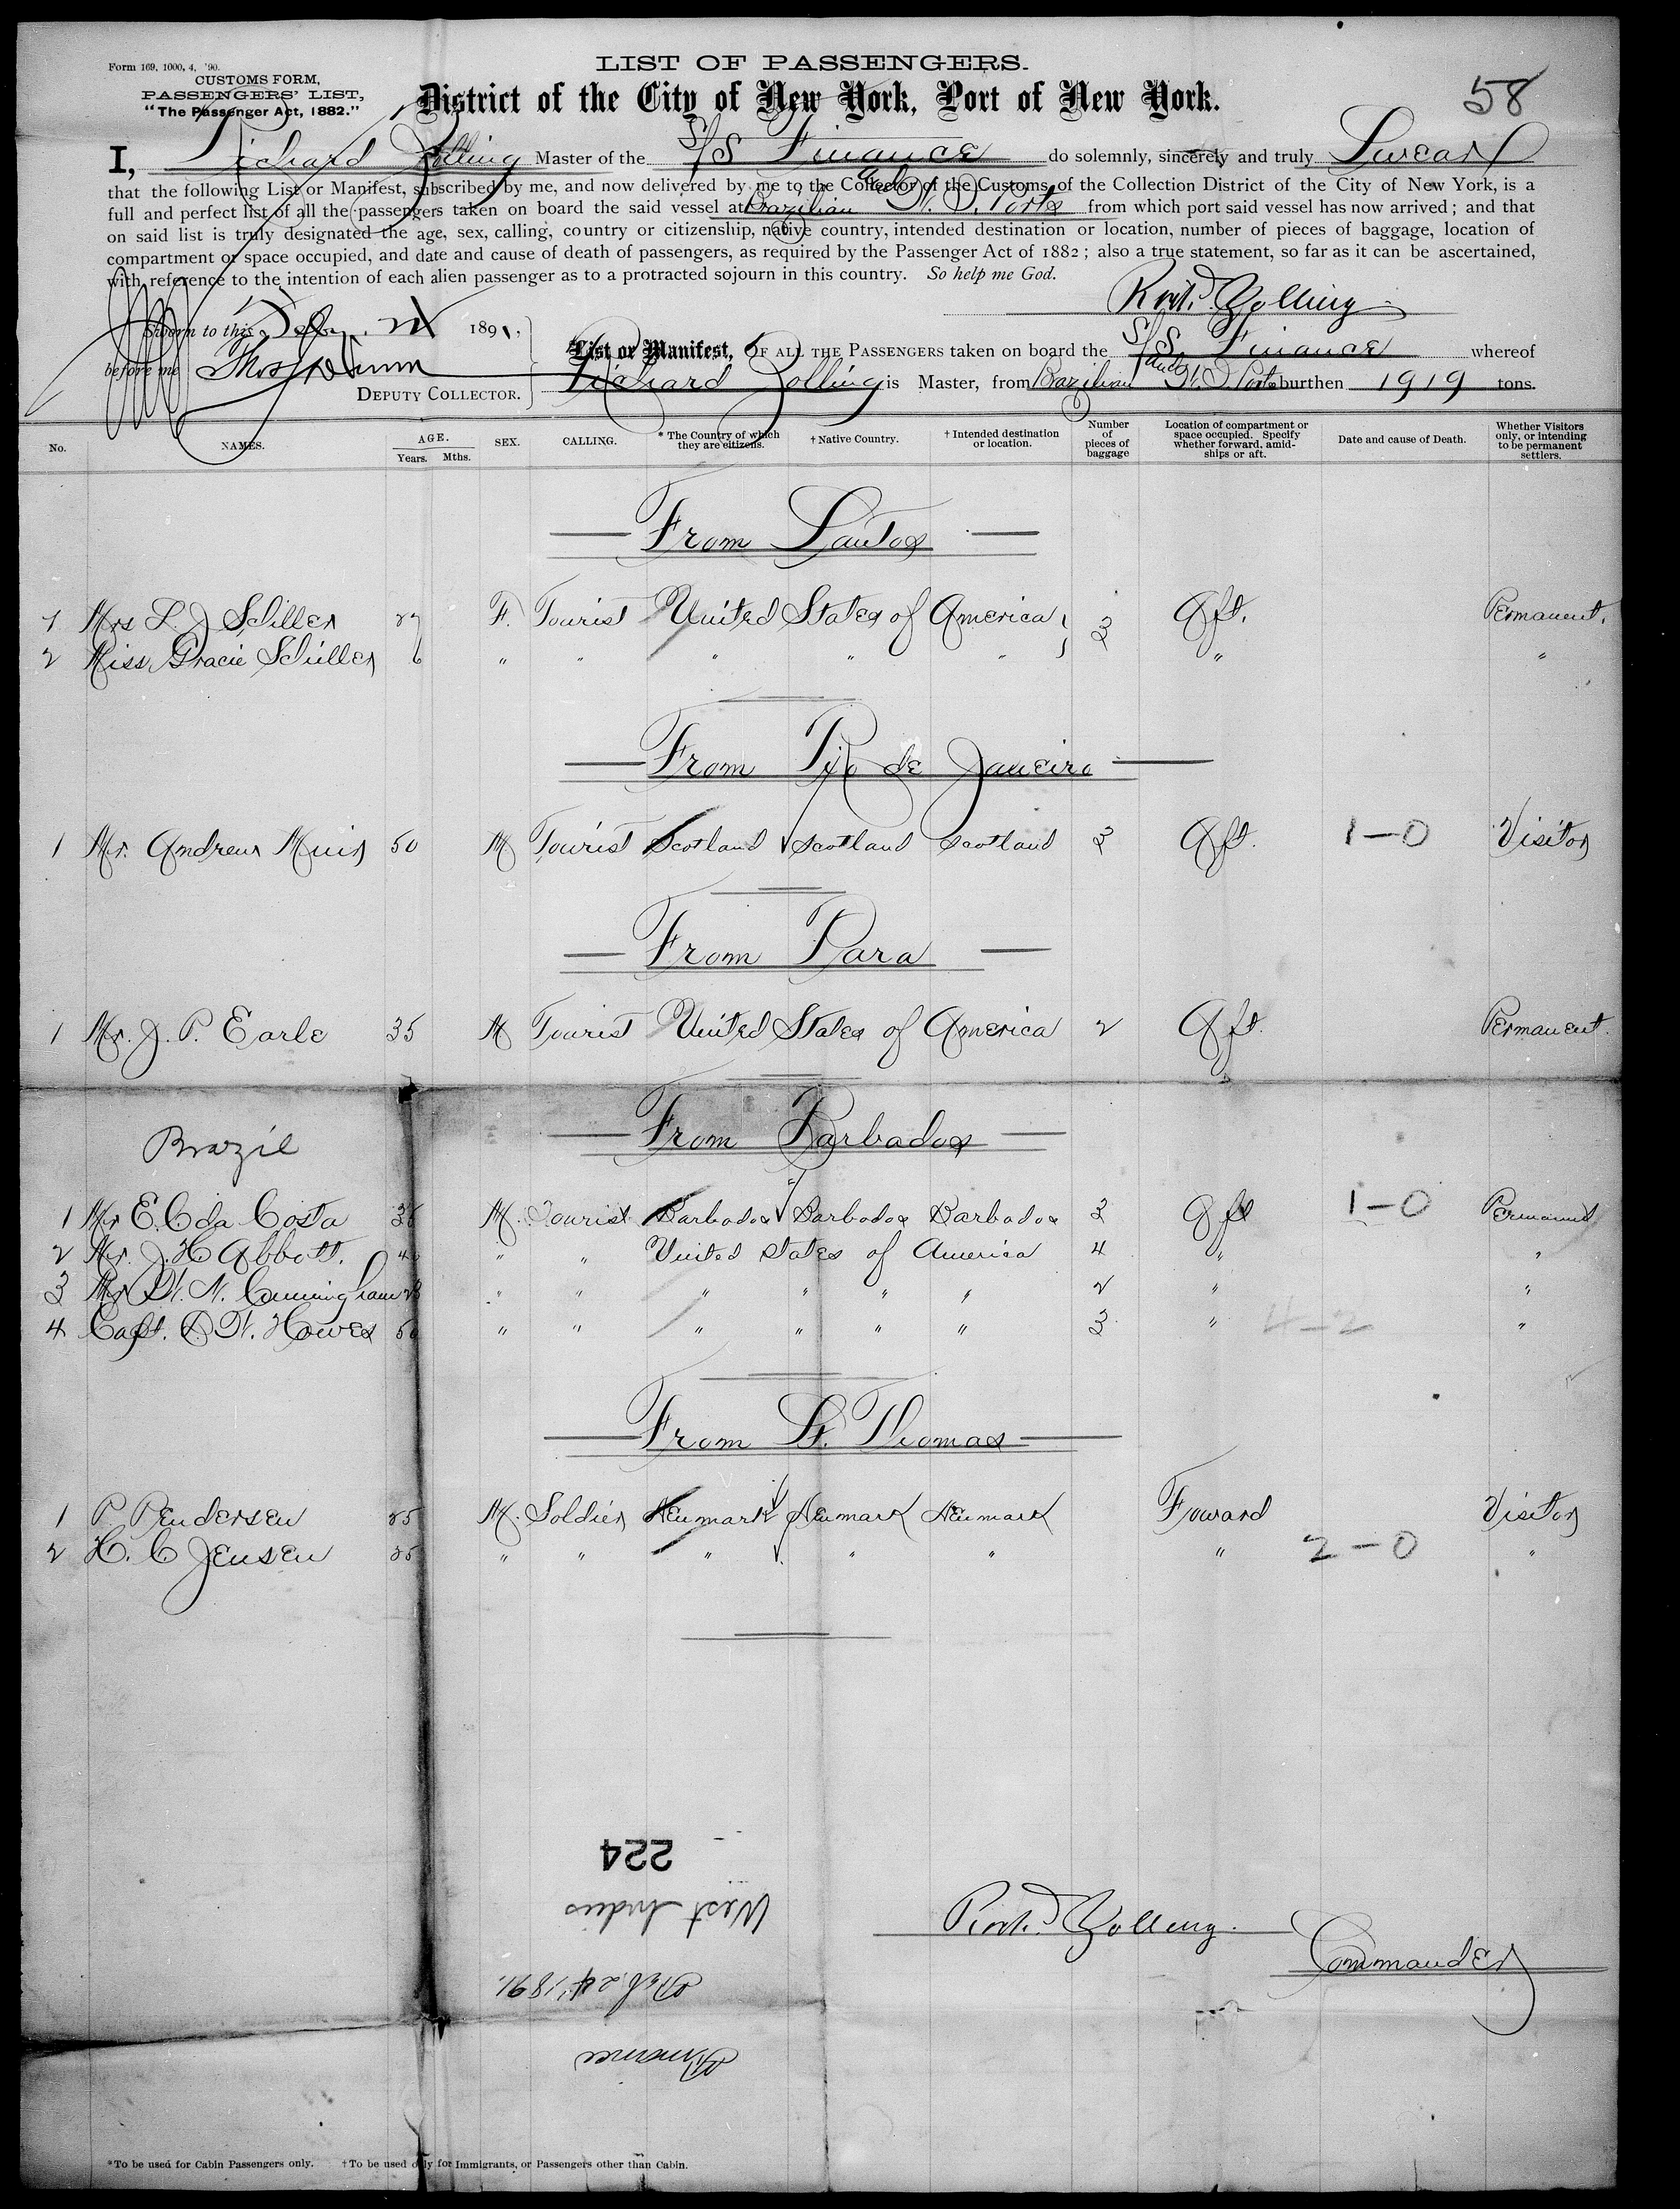 Form 169, 1000, 4, '90.
CUSTOMS FORM,
PASSENGERS' LIST,
"The Passenger Act, 1882."
LIST OF PASSENGERS.
District of the City of New York, Port of New York.
58
I, Richard Zolling Master of the S/S Finance do solemnly, sincerely and truly Swear
that the following List or Manifest, subscribed by me, and now delivered by me to the Collector of the Customs of the Collection District of the City of New York, is a
full and perfect list of all the passengers taken on board the said vessel at Brazilian and W. I. Ports from which port said vessel has now arrived; and that
on said list is truly designated the age, sex, calling, country or citizenship, native country, intended destination or location, number of pieces of baggage, location of
compartment or space occupied, and date and cause of death of passengers, as required by the Passenger Act of 1882; also a true statement, so far as it can be ascertained,
with reference to the intention of each alien passenger as to a protracted sojourn in this country. So help me God.
Richd. Zolling
Sworn to this 1891,
before me Thos
DEPUTY COLLECTOR.
List or Manifest, OF ALL THE PASSENGERS taken on board the S/S Finance whereof
Richard Zolling is Master, from Brazilian and W. I Ports burthen 1919 tons.
No. NAMES. AGE. Years. Mths. SEX. CALLING. * The Country of which they are citizens. † Native Country. † Intended destination or location. Number of pieces of baggage Location of compartment or space occupied. Specify whether forward, amid-ships or aft. Date and cause of Death. Whether Visitors only, or intending to be permanent settlers.
From Santos
1 Mrs L. J Schiller 27 F. Tourist United States of America 3 Aft. Permanent.
2 Miss Gracie Schiller 6 " " " " " " "
From Rio de Janeiro
1 Mr. Andrew Muir 50 M Tourist Scotland Scotland Scotland 3 Aft. 1-0 Visitor
From Para
1 Mr. J. P. Earle 35 M Tourist United States of America 2 Aft. Permanent.
From Barbados
Brazil
1 Mr E. C da Costa 36 M. Tourist Barbados Barbados Barbados 3 Aft 1-0 Permanent
2 Mr. J. H Abbott. 40 " " United States of America 4 " "
3 Mr W. N. Cunningham 28 " " " " " " 2 " "
4 Capt. D. W. Howes 50 " " " " " " 3 " 4-2 "
From St. Thomas
1 P. Pendersen 25 M. Soldier Denmark Denmark Denmark Foward Visitor
2 H. C Jensen 25 " " " " " " 2-0 "
224
West Indies
Feb. 24, 1891.
Finance
Richd. Zolling.
Commander
*To be used for Cabin Passengers only. †To be used only for Immigrants, or Passengers other than Cabin.